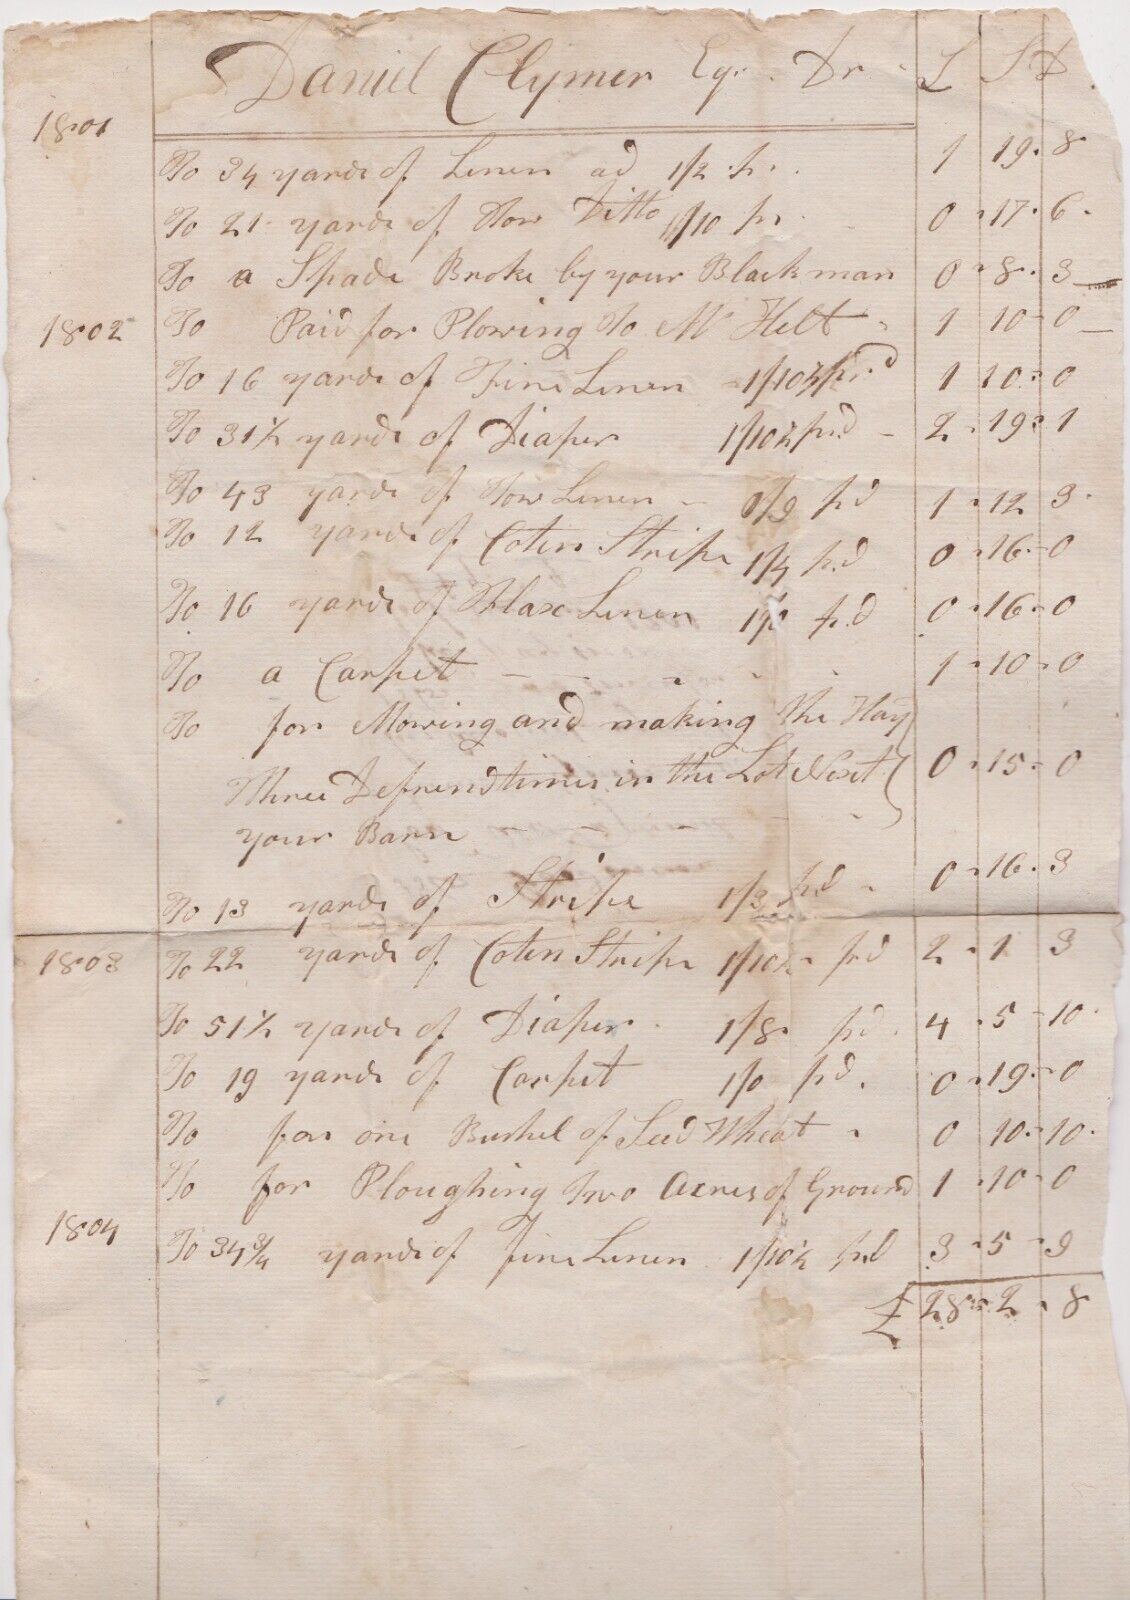 Daniel Clymer Esqr. Dr. £ S D
1801
To 34 yards of Linen ad 1/2 pr. 1 19 8
To 21 yards of Tow Ditto /10 pr 0 17 6
To a Spade Broke by your Blackman 0 8 3
1802 To Paid for Plowing To Mr Helt 1 10 0
To 16 yards of Fine Linen 1/10½ prd 1 10 0
To 31½ yards of Diaper 1/10½ prd 2 19 1
To 43 yards of Tow Linen 0/9 prd 1 12 3
To 12 yards of Coten Stripe 1/4 prd 0 16 0
To 16 yards of Flax Linen 1/0 prd 0 16 0
To a Carpet 1 10 0
To for Mowing and making the Hay
Three Defrend times in the Lot Next 0 15 0
your Barn
To 13 yards of Stripe 1/3 prd 0 16 3
1803 To 22 yards of Coten Stripe 1/10½ prd 2 1 3
To 51½ yards of Diaper 1/8 prd 4 5 10
To 19 yards of Carpet 1/0 prd 0 19 0
To for one Bushel of Seed Wheat 0 10 10
To for Ploughing Two Acres of Ground 1 10 0
1804 To 34¾ yards of fine Linen 1/10½ prd 3 5 9
£ 28 2 8